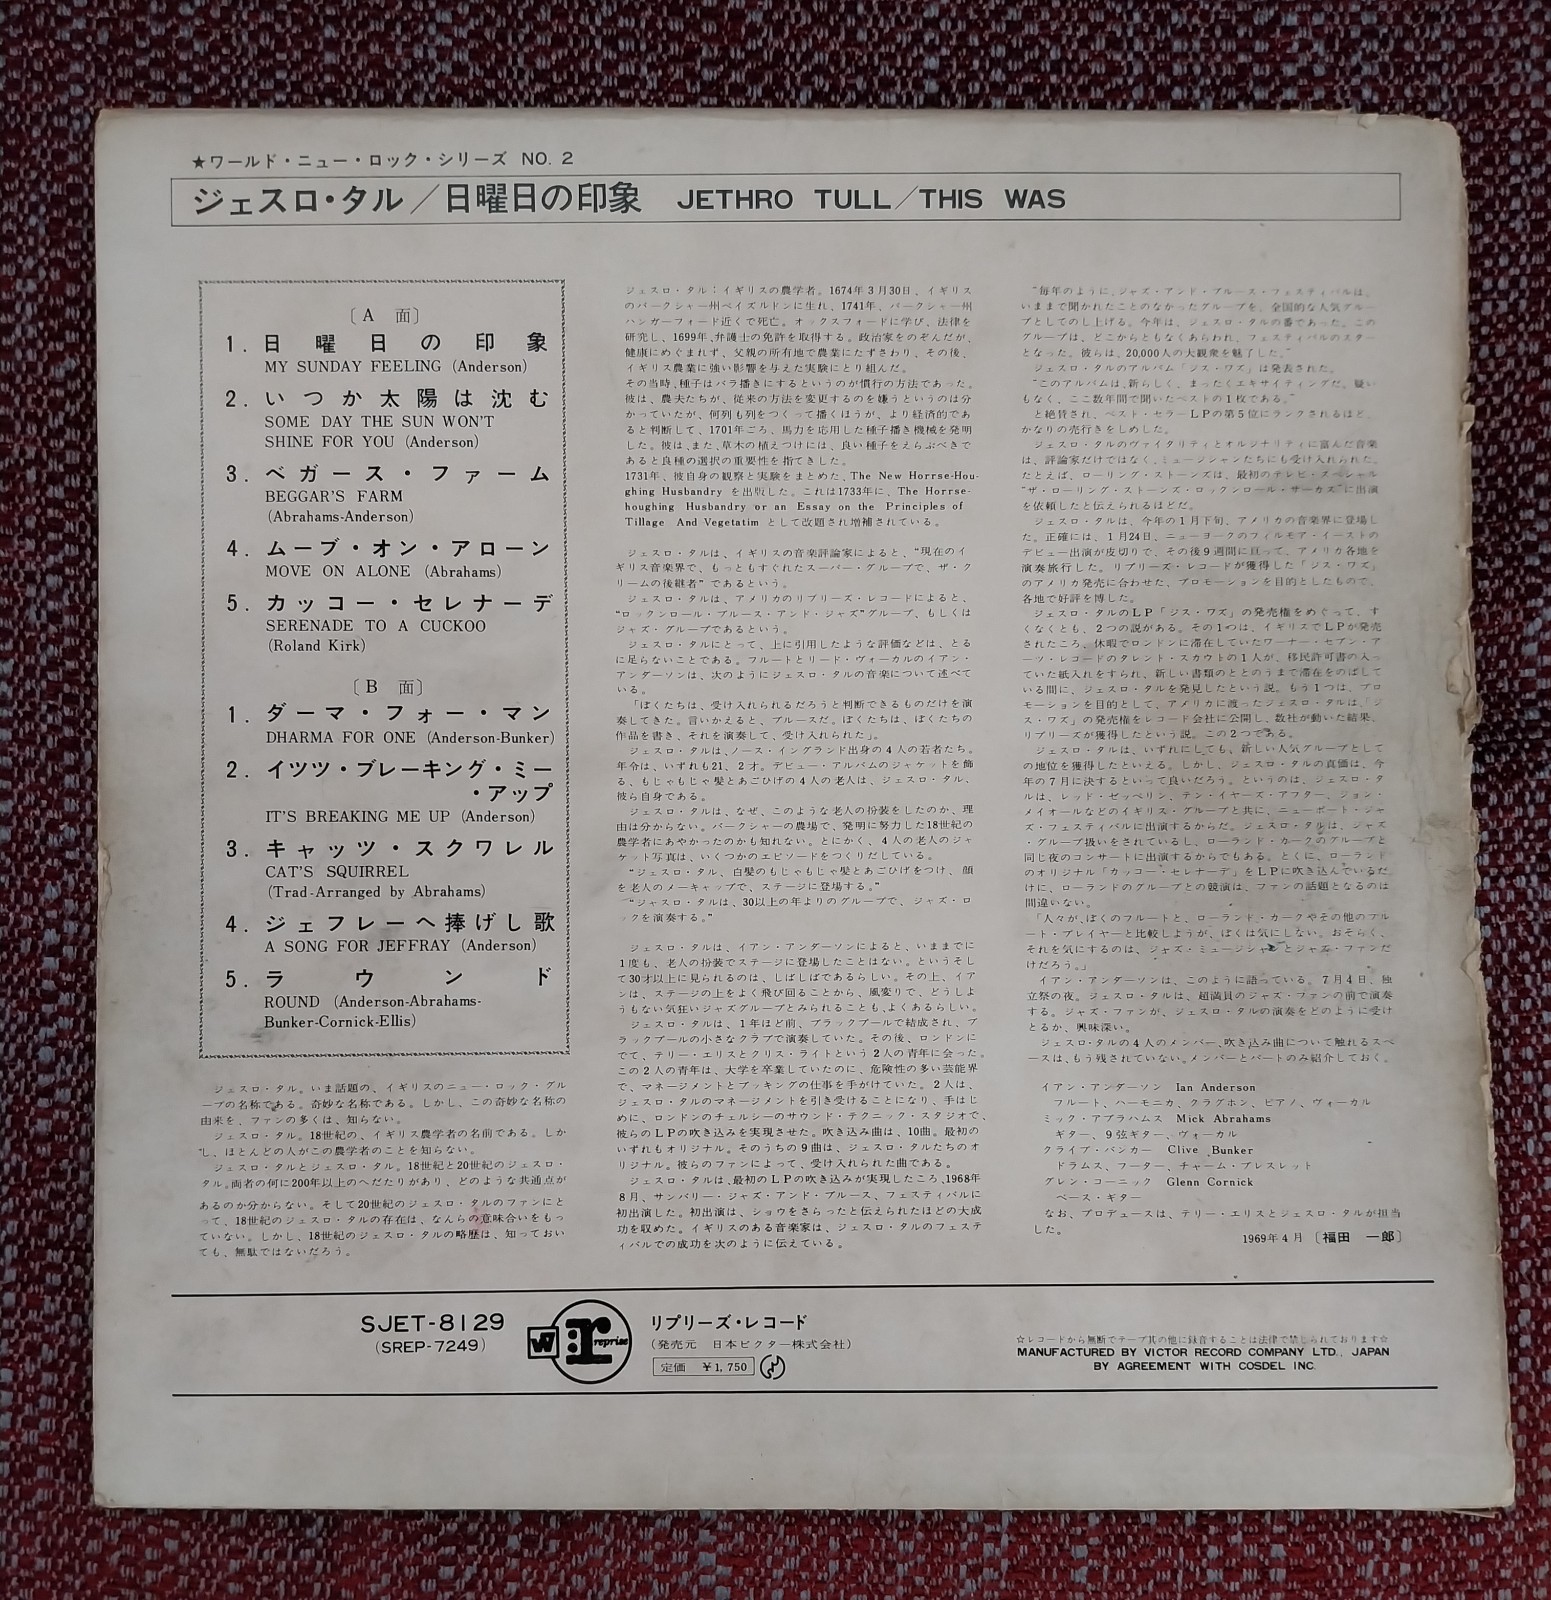 ★ワールド・ニュー・ロック・シリーズ NO. 2
ジェスロ・タル／日曜日の印象 JETHRO TULL／THIS WAS
〔A 面〕
1. 日曜日の印象
MY SUNDAY FEELING (Anderson)
2. いつか太陽は沈む
SOME DAY THE SUN WON'T
SHINE FOR YOU (Anderson)
3. ベガース・ファーム
BEGGAR'S FARM
(Abrahams-Anderson)
4. ムーブ・オン・アローン
MOVE ON ALONE (Abrahams)
5. カッコー・セレナーデ
SERENADE TO A CUCKOO
(Roland Kirk)
〔B 面〕
1. ダーマ・フォー・マン
DHARMA FOR ONE (Anderson-Bunker)
2. イツツ・ブレーキング・ミー
・アップ
IT'S BREAKING ME UP (Anderson)
3. キャッツ・スクワレル
CAT'S SQUIRREL
(Trad-Arranged by Abrahams)
4. ジェフレーへ捧げし歌
A SONG FOR JEFFRAY (Anderson)
5. ラウンド
ROUND (Anderson-Abrahams-
Bunker-Cornick-Ellis)
ジェスロ・タル。いま話題の、イギリスのニュー・ロック・グル
ープの名称である。奇妙な名称である。しかし、この奇妙な名称の
由来を、ファンの多くは、知らない。
ジェスロ・タル。18世紀の、イギリス農学者の名前である。しか
し、ほとんどの人がこの農学者のことを知らない。
ジェスロ・タルとジェスロ・タル。18世紀と20世紀のジェスロ・
タル。両者の何に200年以上のへだたりがあり、どのような共通点が
あるのか分からない。そして20世紀のジェスロ・タルのファンにと
って、18世紀のジェスロ・タルの存在は、なんらの意味合いをもっ
ていない。しかし、18世紀のジェスロ・タルの略歴は、知っておい
ても、無駄ではないだろう。
ジェスロ・タル：イギリスの農学者。1674年3月30日、イギリス
のバークシャー州ベイズルドンに生れ、1741年、バークシャー州
ハンガーフォード近くで死亡。オックスフォードに学び、法律を
研究し、1699年、弁護士の免許を取得する。政治家をのぞんだが、
健康にめぐまれず、父親の所有地で農業にたずさわり、その後、
イギリス農業に強い影響を与えた実験にとり組んだ。
その当時、種子はバラ播きにするというのが慣行の方法であった。
彼は、農夫たちが、従来の方法を変更するのを嫌うというのは分
かっていたが、何列も列をつくって播くほうが、より経済的であ
ると判断して、1701年ごろ、馬力を応用した種子播き機械を発明
した。彼は、また、草木の植えつけには、良い種子をえらぶべきで
あると良種の選択の重要性を指てきした。
1731年、彼自身の観察と実験をまとめた、The New Horrse-Hou-
ghing Husbandry を出版した。これは1733年に、The Horrse-
houghing Husbandry or an Essay on the Principles of
Tillage And Vegetatim として改題され増補されている。
ジェスロ・タルは、イギリスの音楽評論家によると、“現在のイ
ギリス音楽界で、もっともすぐれたスーパー・グループで、ザ・ク
リームの後継者”であるという。
ジェスロ・タルは、アメリカのリプリーズ・レコードによると、
“ロックンロール・ブルース・アンド・ジャズ”グループ、もしくは
ジャズ・グループであるという。
ジェスロ・タルにとって、上に引用したような評価などは、とる
に足らないことである。フルートとリード・ヴォーカルのイアン・
アンダーソンは、次のようにジェスロ・タルの音楽について述べて
いる。
「ぼくたちは、受け入れられるだろうと判断できるものだけを演
奏してきた。言いかえると、ブルースだ。ぼくたちは、ぼくたちの
作品を書き、それを演奏して、受け入れられた」。
ジェスロ・タルは、ノース・イングランド出身の4人の若者たち。
年令は、いずれも21、2才。デビュー・アルバムのジャケットを飾
る、もじゃもじゃ髪とあごひげの4人の老人は、ジェスロ・タル、
彼ら自身である。
ジェスロ・タルは、なぜ、このような老人の扮装をしたのか、理
由は分からない。バークシャーの農場で、発明に努力した18世紀の
農学者にあやかったのかも知れない。とにかく、4人の老人のジャ
ケット写真は、いくつかのエピソードをつくりだしている。
“ジェスロ・タル、白髪のもじゃもじゃ髪とあごひげをつけ、顔
を老人のメーキャップで、ステージに登場する。”
“ジャスロ・タルは、30以上の年よりのグループで、ジャズ・ロ
ックを演奏する。”
ジェスロ・タルは、イアン・アンダーソンによると、いままでに
1度も、老人の扮装でステージに登場したことはない。というそし
て30才以上に見られるのは、しばしばであるらしい。その上、イア
ンは、ステージの上をよく飛び回ることから、風変りで、どうしよ
うもない気狂いジャズグループとみられることも、よくあるらしい。
ジェスロ・タルは、1年ほど前、ブラックプールで結成され、ブ
ラックプールの小さなクラブで演奏していた。その後、ロンドンに
でて、テリー・エリスとクリス・ライトという2人の青年に会った。
この2人の青年は、大学を卒業していたのに、危険性の多い芸能界
で、マネージメントとブッキングの仕事を手がけていた。2人は、
ジェスロ・タルのマネージメントを引き受けることになり、手はじ
めに、ロンドンのチェルシーのサウンド・テクニック・スタジオで、
彼らのLPの吹き込みを実現させた。吹き込み曲は、10曲。最初の
いずれもオリジナル。そのうちの9曲は、ジェスロ・タルたちのオ
リジナル。彼らのファンによって、受け入れられた曲である。
ジェスロ・タルは、最初のLPの吹き込みが実現したころ、1968年
8月、サンバリー・ジャズ・アンド・ブルース、フェスティバルに
初出演した。初出演は、ショウをさらったと伝えられたほどの大成
功を収めた。イギリスのある音楽家は、ジェスロ・タルのフェステ
ィバルでの成功を次のように伝えている。
“毎年のように、ジャズ・アンド・ブルース・フェスティバルは、
いままで聞かれたことのなかったグループを、全国的な人気グルー
プとしてのし上げる。今年は、ジェスロ・タルの番であった。この
グループは、どこからともなくあらわれ、フェスティバルのスター
となった。彼らは、20,000人の大観衆を魅了した。”
ジェスロ・タルのアルバム「ジス・ワズ」は発表された。
“このアルバムは、新らしく、まったくエキサイティングだ。疑い
もなく、ここ数年間で聞いたベストの1枚である。”
と絶賛され、ベスト・セラーLPの第5位にランクされるほど、
かなりの売行きをしめした。
ジェスロ・タルのヴァイタリティとオルジナリティに富んだ音楽
は、評論家だけではなく、ミュージシャンたちにも受け入れられた。
たとえば、ローリング・ストーンズは、最初のテレビ・スペシャル
“ザ・ローリング・ストーンズ・ロックンロール・サーカス”に出演
を依頼したと伝えられるほどだ。
ジェスロ・タルは、今年の1月下旬、アメリカの音楽界に登場し
た。正確には、1月24日、ニューヨークのフィルモア・イーストの
デビュー出演が皮切りで、その後9週間に亘って、アメリカ各地を
演奏旅行した。リプリーズ・レコードが獲得した「ジス・ワズ」
のアメリカ発売に合わせた、プロモーションを目的としたもので、
各地で好評を博した。
ジェスロ・タルのLP「ジス・ワズ」の発売権をめぐって、す
くなくとも、2つの説がある。その1つは、イギリスでLPが発売
されたころ、休暇でロンドンに滞在していたワーナー・セブン・ア
ーツ・レコードのタレント・スカウトの1人が、移民許可書の入っ
ていた紙入れをすられ、新しい書類のととのうまで滞在をのばして
いる間に、ジェスロ・タルを発見したという説。もう1つは、プロ
モーションを目的として、アメリカに渡ったジェスロ・タルは、「ジ
ス・ワズ」の発売権をレコード会社に公開し、数社が動いた結果、
リプリーズが獲得したという説。この2つである。
ジェスロ・タルは、いずれにしても、新しい人気グループとして
の地位を獲得したといえる。しかし、ジェスロ・タルの真価は、今
年の7月に決するといって良いだろう。というのは、ジェスロ・タ
ルは、レッド・ゼッペリン、テン・イヤーズ・アフター、ジョン・
メイオールなどのイギリス・グループと共に、ニューポート・ジャ
ズ・フェスティバルに出演するからだ。ジェスロ・タルは、ジャズ
・グループ扱いをされているし、ローランド・カークのグループと
同じ夜のコンサートに出演するからでもある。とくに、ローランド
のオリジナル「カッコー・セレナーデ」をLPに吹き込んでいるだ
けに、ローランドのグループとの競演は、ファンの話題となるのは
間違いない。
「人々が、ぼくのフルートと、ローランド・カークやその他のフル
ート・プレイヤーと比較しようが、ぼくは気にしない。おそらく、
それを気にするのは、ジャズ・ミュージシャンとジャズ・ファンだ
けだろう。」
イアン・アンダーソンは、このように語っている。7月4日、独
立祭の夜。ジェスロ・タルは、超満員のジャズ・ファンの前で演奏
する。ジャズ・ファンが、ジェスロ・タルの演奏をどのように受け
とるか、興味深い。
ジェスロ・タルの4人のメンバー、吹き込み曲について触れるスペ
ースは、もう残されていない。メンバーとパートのみ紹介しておく。
イアン・アンダーソン Ian Anderson
フルート、ハーモニカ、クラグホン、ピアノ、ヴォーカル
ミック・アブラハムス Mick Abrahams
ギター、9弦ギター、ヴォーカル
クライブ・バンカー Clive Bunker
ドラムス、フーター、チャーム・ブレスレット
グレン・コーニック Glenn Cornick
ベース・ギター
なお、プロデュースは、テリー・エリスとジェスロ・タルが担当
した。
1969年4月〔福田 一郎〕
SJET-8129
(SREP-7249)
W7
r
reprise
リプリーズ・レコード
(発売元 日本ビクター株式会社)
定価 ￥1,750
☆レコードから無断でテープ其の他に録音することは法律で禁じられております☆
MANUFACTURED BY VICTOR RECORD COMPANY LTD., JAPAN
BY AGREEMENT WITH COSDEL INC.